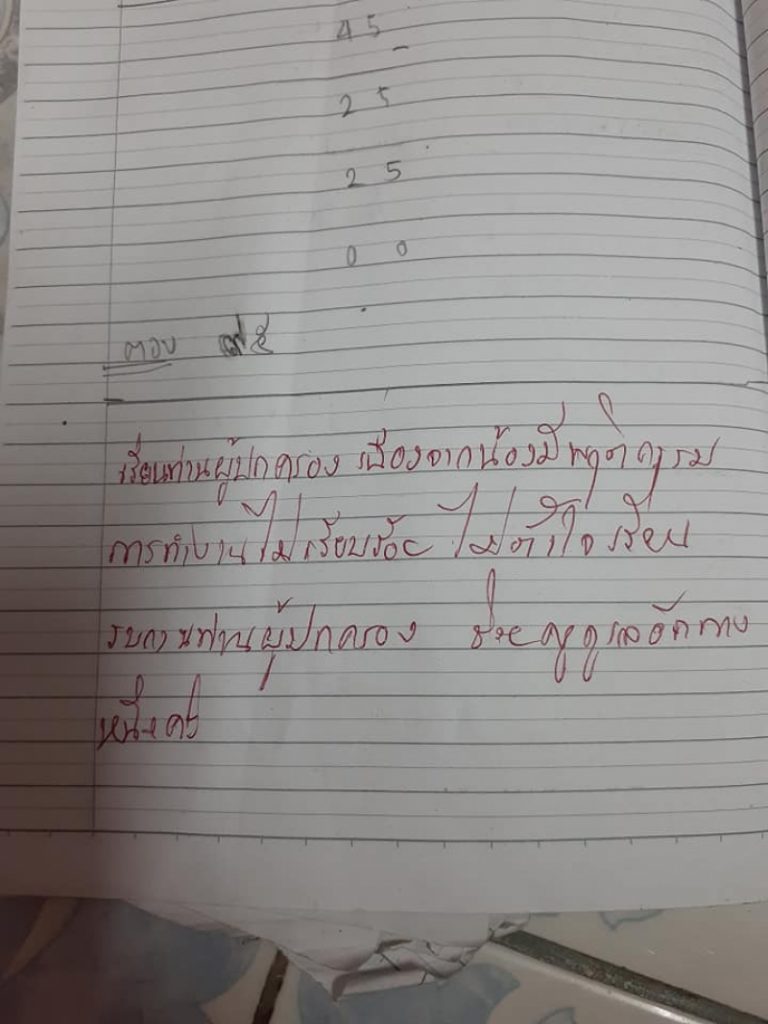 45
25
25
00
ตอบ ๗๕
เรียนท่านผู้ปกครอง เนื่องจากน้องมีพฤติกรรม
การทำงานไม่เรียบร้อย ไม่ตั้งใจเรียน
รบกวนท่านผู้ปกครอง ช่วยดูแลอีกทาง
หนึ่งครับ